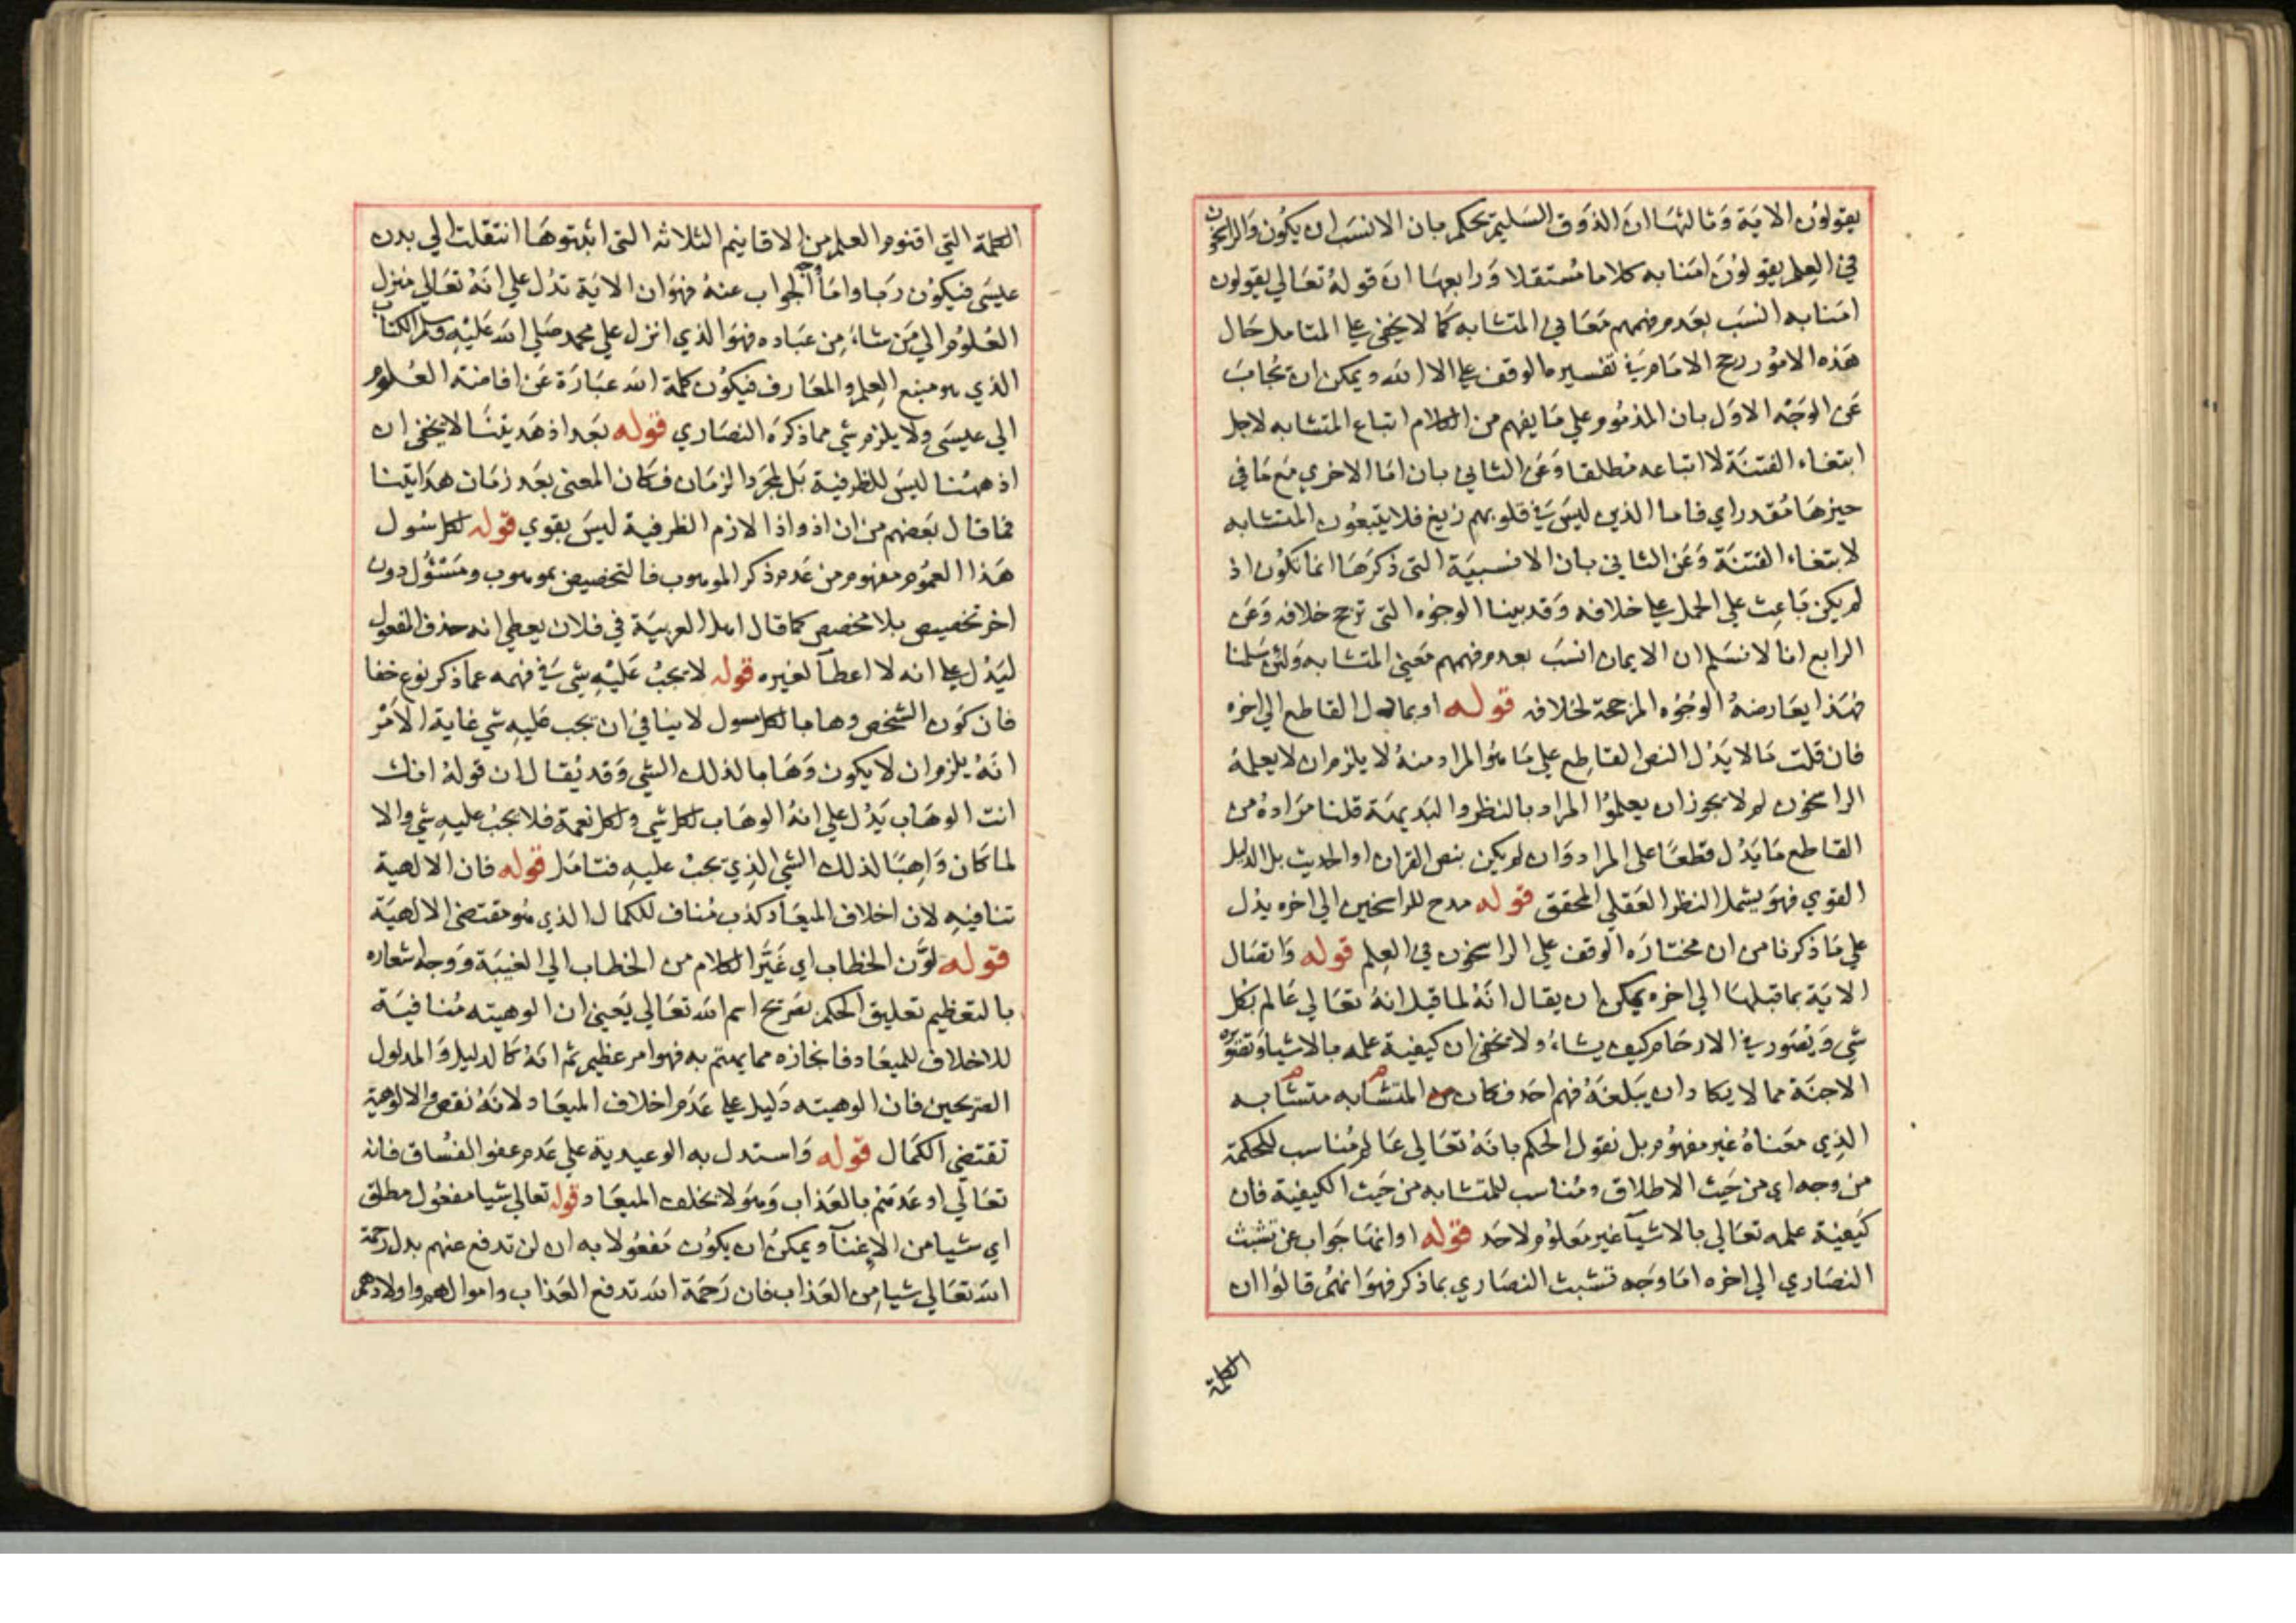 يقولون الاية وثالثها ان الذوق السليم يحكم بان الانسب ان يكون والراسخون
في العلم يقولون امنا به كلاما مستقلا ورابعها ان قوله تعالي يقولون
امنا به انسب بعدم فهمهم معاني المتشابه كما لا يخفي علي المتامل حال
هذه الامور رجح الامام في تفسيره الوقف علي الا الله ويمكن ان يجاب
عن الوجه الاول بان المذموم علي ما يفهم من الكلام اتباع المتشابه لاجل
ابتغاء الفتنة لا اتباعه مطلقا وعن الثاني بان اما الاخري مع ما في
حيزها مقدر اي فاما الذين ليس في قلوبهم زيغ فلا يتبعون المتشابه
لابتغاء الفتنة وعن الثاني بان الانسبية التي ذكرها انما تكون اذ
لم يكن باعث علي الحمل علي خلافه وقد بينا الوجوه التي ترجح خلافه وعن
الرابع انا لا نسلم ان الايمان انسب بعدم فهمهم معني المتشابه ولئن سلمنا
فهذا يعارضه الوجوه المرجحة لخلافه قوله او بما دل القاطع الي اخره
فان قلت ما لا يدل النص القاطع علي ما هو المراد منه لا يلزم ان لا يعلمه
الراسخون لم لا يجوز ان يعلموا المراد بالنظر والبديهة قلنا مراده من
القاطع ما يدل قطعا علي المراد وان لم يكن بنص القران او الحديث بل الدليل
القوي فهو يشمل النظر العقلي المحقق قوله مدح للراسخين الي اخره يدل
علي ما ذكرنا من ان مختاره الوقف علي الراسخون في العلم قوله واتصال
الاية بما قبلها الي اخره يمكن ان يقال انه لما قيل انه تعالي عالم بكل
شي ويصور في الارحام كيف يشاء ولا يخفي ان كيفية علمه بالاشيا وتصوره
الاجنة مما لا يكاد ان يبلغه فهم احد فكان من المتشابه متشابه
الذي معناه غير مفهوم بل نقول الحكم بانه تعالي عالم مناسب للحكمة
من وجه اي من حيث الاطلاق ومناسب للمتشابه من حيث الكيفية فان
كيفية علمه تعالي بالاشيآ غير معلوم لاحد قوله او انها جواب عن تشبث
النصاري الي اخره اما وجه تشبث النصاري بما ذكر فهو انهم قالوا ان
الكلمة
الكلمة التي اقنوم العلم من الاقانيم الثلاثه التي اثبتوها انتقلت الي بدن
عيسي فيكون ربا واما الجواب عنه فهو ان الاية تدل علي انه تعالي منزل
العلوم الي من شاء من عباده فهو الذي انزل علي محمد صلي الله عليه وسلم الكتاب
الذي هو منبع العلم والمعارف فيكون كلمة الله عبارة عن افاضته العلوم
الي عيسي ولا يلزم شي مما ذكره النصاري قوله بعد اذ هديتنا لا يخفي ان
اذ ههنا ليس للظرفية بل لمجرد الزمان فكان المعني بعد زمان هدايتنا
فما قال بعضهم من ان اذ واذا لازم الظرفية ليس بقوي قوله لكل سول
هذا العموم مفهوم من عدم ذكر الموهوب فالتخصيص بموهوب ومسئول دون
اخر تخصيص بلا مخصص كما قال اهل العربية في فلان يعطي انه حذف المفعول
ليدل علي انه لا اعطآ لغيره قوله لا يجب عليه شي في فهمه عما ذكر نوع خفا
فان كون الشخص وهابا لكل سول لا ينافي ان يجب عليه شي غاية الامر
انه يلزم ان لا يكون وهابا لذلك الشي وقد يقال ان قوله انك
انت الوهاب يدل علي انه الوهاب لكل شي ولكل نعمة فلا يجب عليه شي والا
لما كان واهبا لذلك الشي الذي يجب عليه فتامل قوله فان الالهية
تنافيه لان اخلاف الميعاد كذب مناف للكمال الذي هو مقتضي الالهية
قوله لون الخطاب اي غير الكلام من الخطاب الي الغيبة ووجه اشعاره
بالتعظيم تعليق الحكم بصريح اسم الله تعالي يعني ان الوهيته منافية
للاخلاف للميعاد فانجازه مما يهتم به فهو امر عظيم ثم انه كالدليل والمدلول
الصريحين فان الوهيته دليل علي عدم اخلاف الميعاد لانه نقص والالوهية
تقتضي الكمال قوله واستدل به الوعيدية علي عدم عفو الفساق فانه
تعالي اوعدهم بالعذاب وهو لا يخلف الميعاد وقوله تعالي شيا مفعول مطلق
اي شيا من الاغنآ ويمكن ان يكون مفعولا به ان لن تدفع عنهم بدل رحمة
الله تعالي شيا من العذاب فان رحمة الله تدفع العذاب واموالهم واولادهم